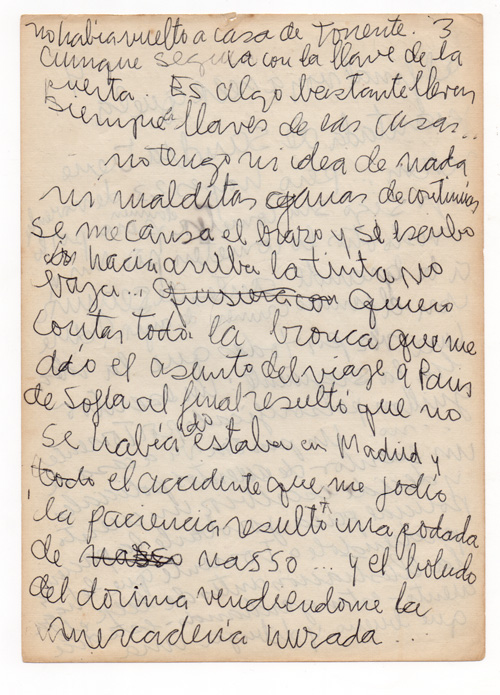 no habia vuelto a casa de Torrente. 3
aunque seguia con la llave de la
puerta. Es algo bastante lleven
siempre la llaves de las casas..
no tengo ni idea de nada
ni malditas ganas de continuar
se me cansa el brazo y si escribo
hacia arriba la tinta no
baja... quiero
contar toda la bronca que me
dio el asunto del viaje a Paris
de Sofia al final resultó que no
se había ido estaba en Madrid y
todo el accidente que me jodio
la paciencia resultó una podada
de nasso ... y el boludo
del dorima vendiendome la
mercaderia murada ...